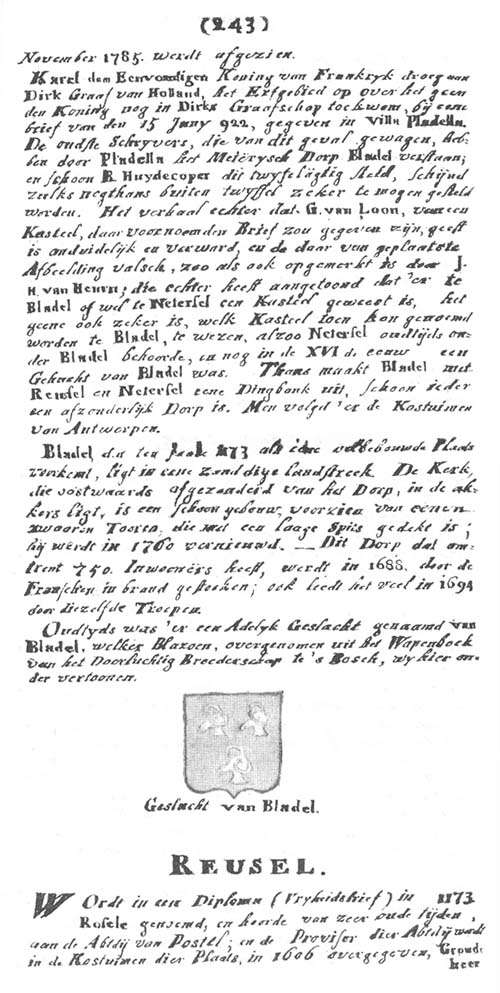 (243)
November 1785. werdt afgezien.
Karel dem Eenvoudigen Koning van Frankryk droeg aan
Dirk Graaf van Holland, het Erfgebied op over het geen
den Koning nog in Dirks Graafschap toekwam, bij eene
brief van den 15 Juny 922, gegeven in Villa Pladella.
De oudste Schryvers, die van dit geval gewagen, heb-
ben door Pladella het Meierysch Dorp Bladel verstaan;
en schoon B. Huydecoper dit twyfelagtig steld, schijnd
zulks nogthans buiten twyffel zeker te mogen gesteld
worden. Het verhaal echter dat G. van Loon, van een
Kasteel, daar voornoemden Brief zou gegeven zijn, geeft
is onduidelijk en verward, en de daar van geplaatste
Afbeelding valsch, zoo als ook opgemerkt is door J.
H. van Heurn; die echter heeft aangetoond dat 'er te
Bladel of wel te Netersel een Kasteel geweest is, het
geene ook zeker is, welk Kasteel toen kon genoemd
worden te Bladel, te wezen, alzoo Netersel oudtijds on-
der Bladel behoorde, en nog in de XVI de eeuw een
Gehucht van Bladel was. Thans maakt Bladel met
Reusel en Netersel eene Dingbank uit, schoon ieder
een afzonderlijk Dorp is. Men volgd 'er de Kostuimen
van Antwerpen.
Bladel, dat ten Jaare 1173 als eene volkebouwde Plaats
voorkomt, ligt in eene zanddige landstreek. De Kerk,
die oostwaards afgezonderd van het Dorp, in de ak-
kers ligt, is een schoon gebouw, voorzien van eenen
zwaaren Tooren, die met een laage Spits gedekt is;
hij werdt in 1760 vernieuwd. — Dit Dorp dat om-
trent 750. Inwooners heeft, werdt in 1688. door de
Franschen in brand gestooken; ook leedt het veel in 1694
door diezelfde Troepen.
Oudtyds was 'er een Adelyk Geslacht genaamd van
Bladel, welkes Blazoen, overgenomen uit het Wapenboek
van het Doorluchtig Broederschap te 's Bosch, wy hier on-
der vertoonen.
Geslacht van Bladel.
REUSEL.
Wordt in een Diploma (Vryheidsbrief) in 1173
Rosele genoemd, en hoorde van zeer oude tijden,
aan de Abtdij van Postel; en de Provisor dier Abtdij wordt
in de Kostuimen dier Plaats, in 1606 overgegeven, Grond-
heer